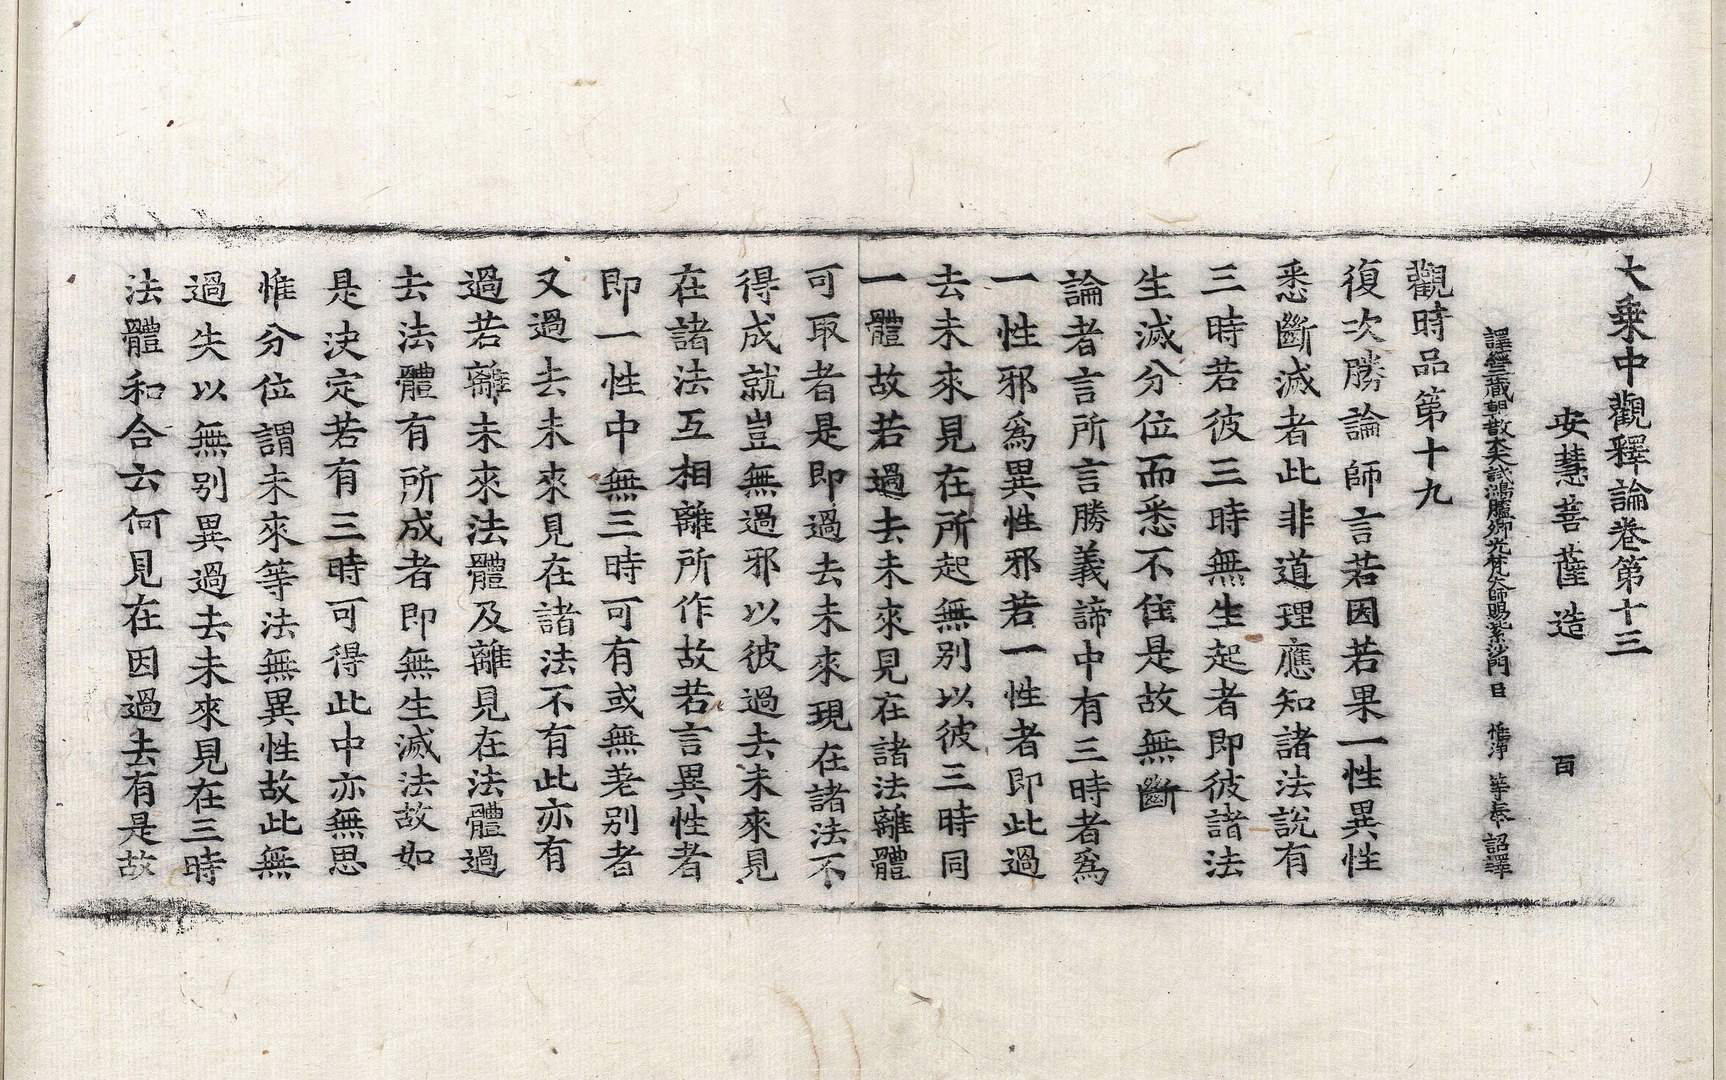 大乗中觀釋論卷第十三
安慧菩薩造 百
譯經三藏朝散大夫試鴻臚卿光梵大師賜紫沙門臣 惟淨 等奉 詔譯
觀時品第十九
復次勝論師言若因若果一性異性
悉斷滅者此非道理應知諸法說有
三時若彼三時無生起者即彼諸法
生滅分位而悉不住是故無斷
論者言所言勝義諦中有三時者爲
一性邪爲異性邪若一性者即此過
去未來見在所起無別以彼三時同
一體故若過去未來見在諸法離體
可取者是即過去未來現在諸法不
得成就豈無過邪以彼過去未來見
在諸法互相離所作故若言異性者
即一性中無三時可有或無差別者
又過去未來見在諸法不有此亦有
過若離未來法體及離見在法體過
去法體有所成者即無生滅法故如
是決定若有三時可得此中亦無思
惟分位謂未來等法無異性故此無
過失以無別異過去未來見在三時
法體和合云何見在因過去有是故